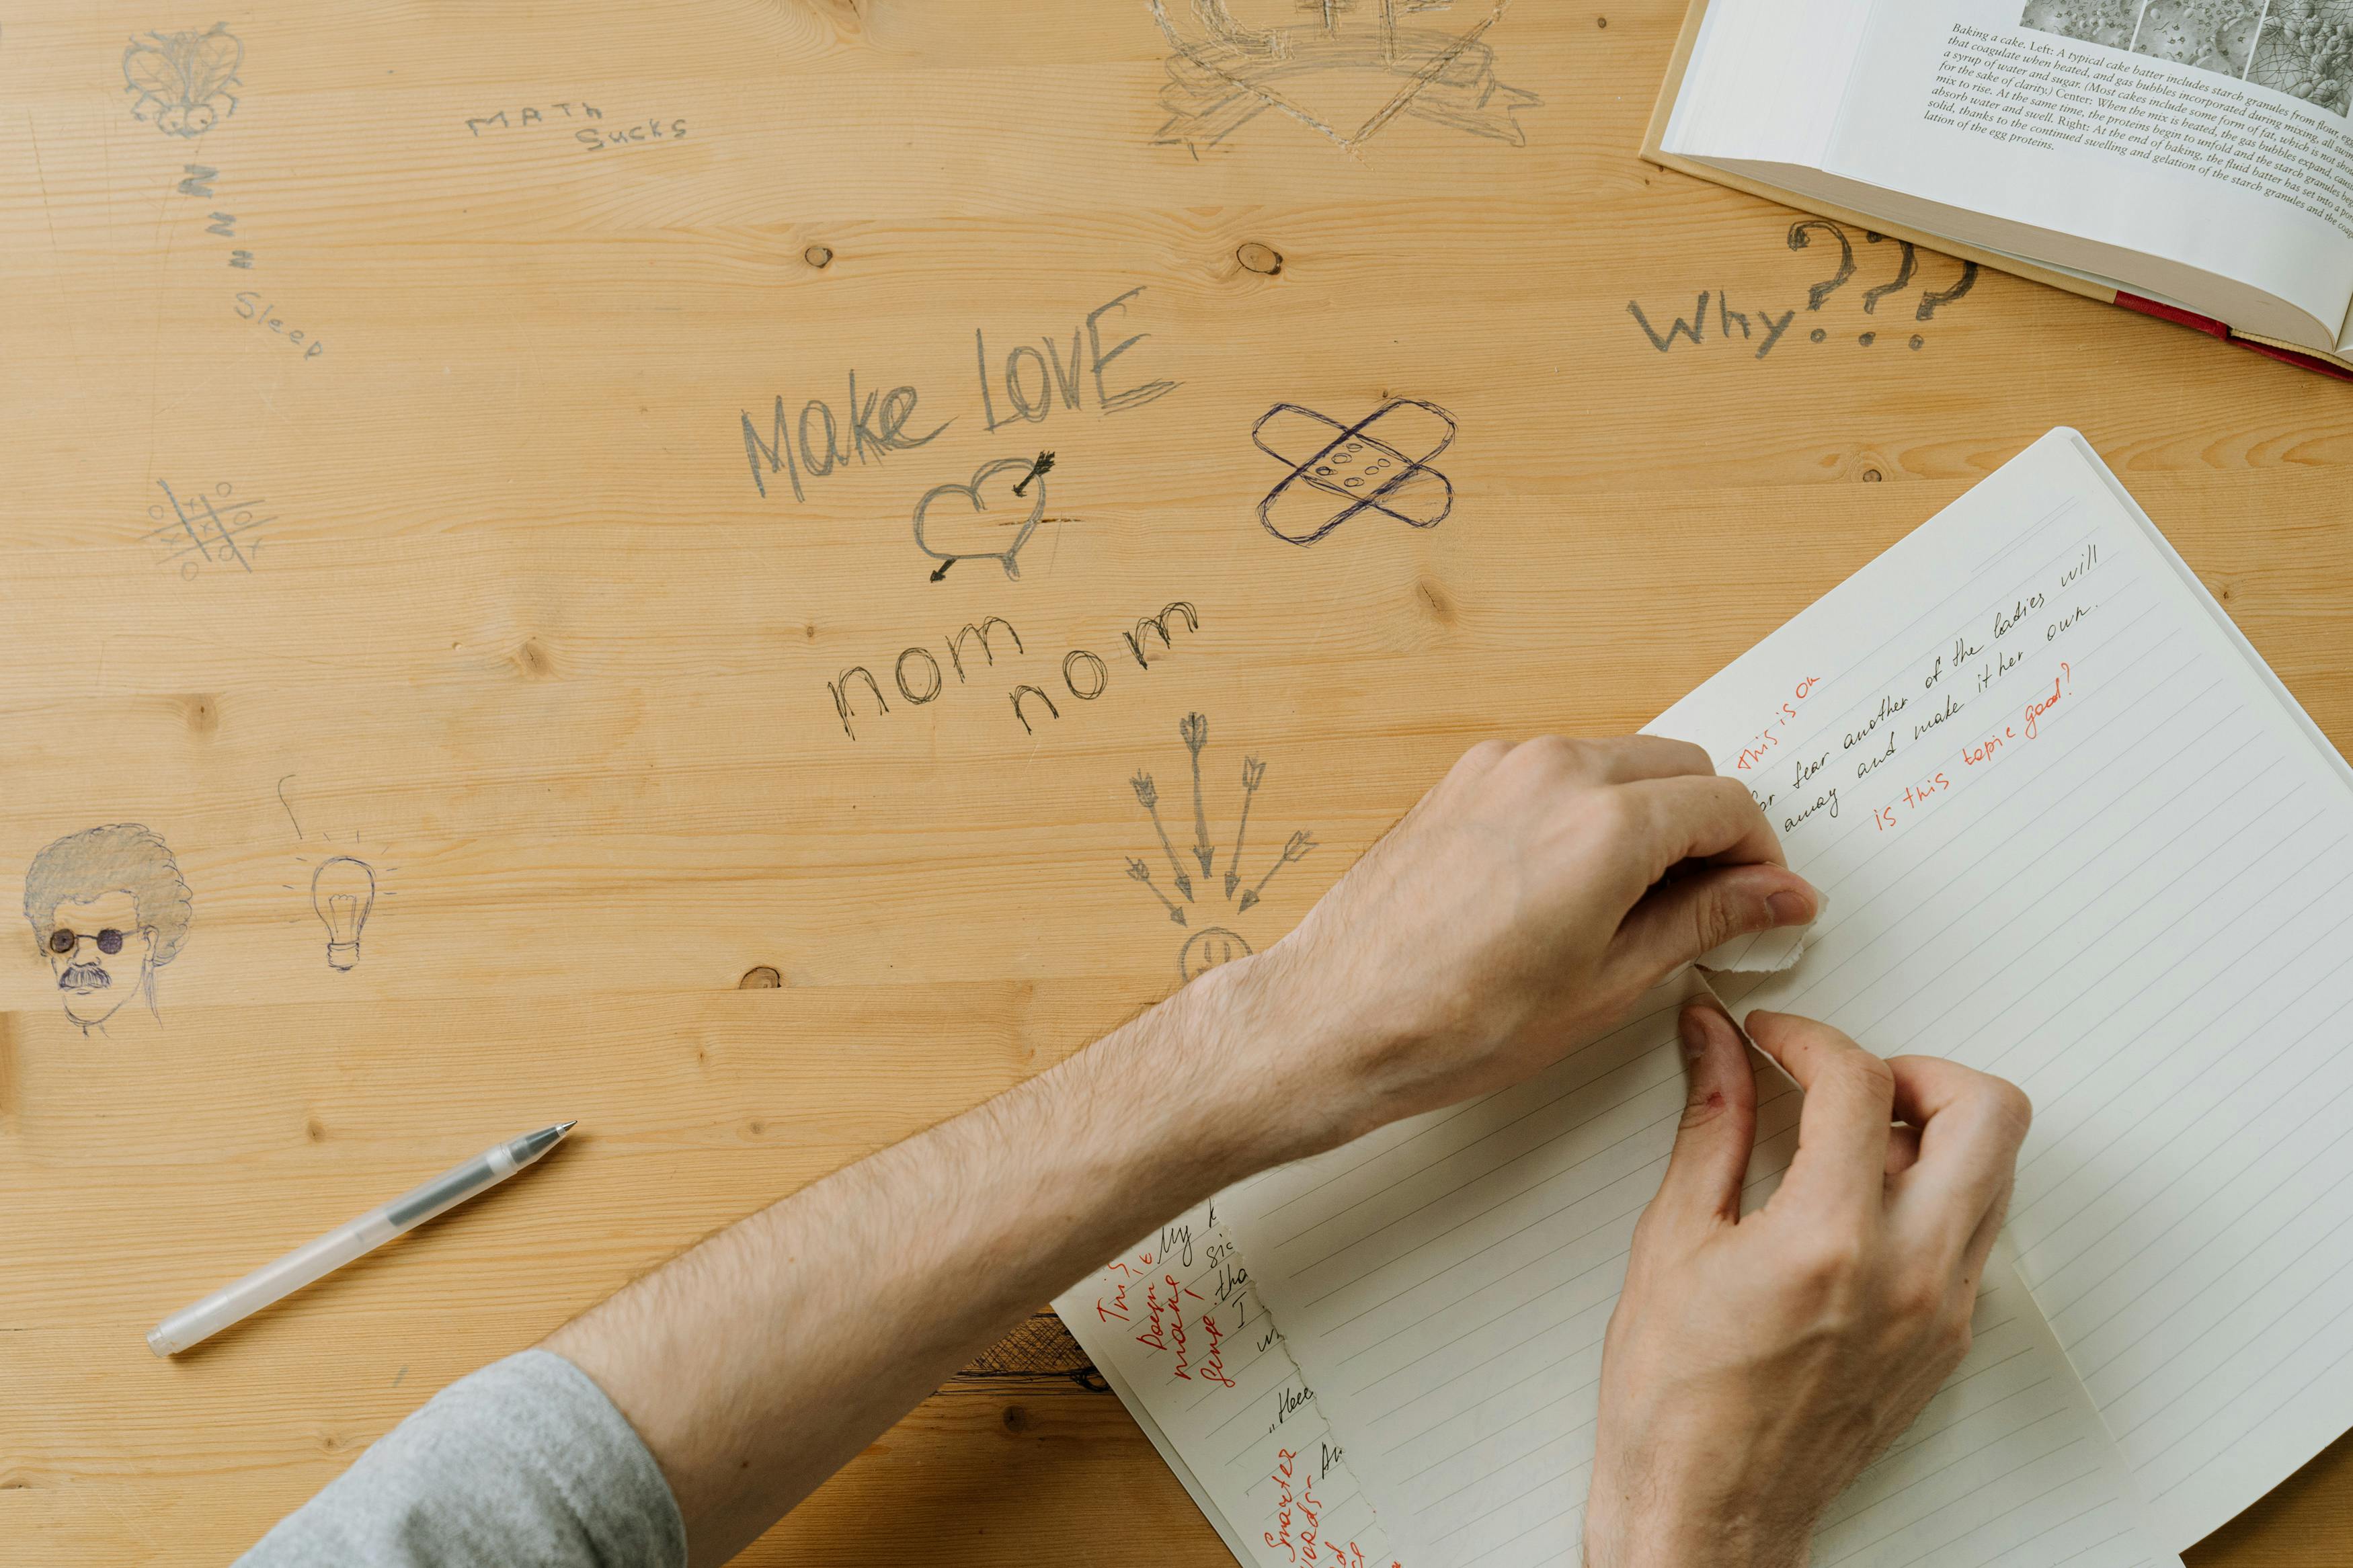 MATH
Sucks
N N N N
Sleep
Make LOVE
nom
nom
Why???
Baking a cake. Left: A typical cake batter includes starch granules from flour, egg
that coagulate when heated, and gas bubbles incorporated during mixing, all
a syrup of water and sugar. (Most cakes include some form of fat, which is not
for the sake of clarity.) Center: When the mix is heated, the gas bubbles expand,
mix to rise. At the same time, the proteins begin to unfold and the starch granules
absorb water and swell. Right: At the end of baking, the fluid batter has set into a
solid, thanks to the continued swelling and gelation of the starch granules and the
lation of the egg proteins.
This is Ok
for fear another of the ladies will
away and make it her own.
is this topic good?
This
Doesn't
make
sense!
My
sic
tha
I
"Hee
Smarter
words-